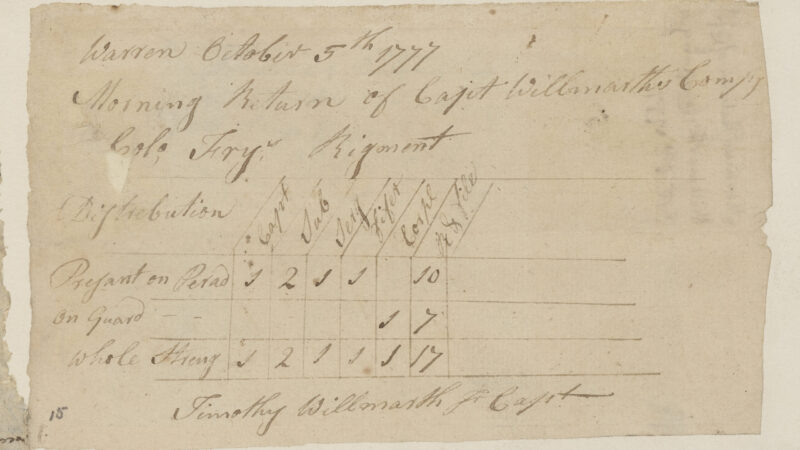 Warren October 5th 1777
Morning Return of Capt Willmarths Compy
Colo Frys Rigment
Distrebution Capt Sub Serj fifer Corpl R & file
Presant on Perad 1 2 1 1 10
on Guard - - 1 7
Whole Streng 1 2 1 1 1 17
Timothy Willmarth Jr Capt
15